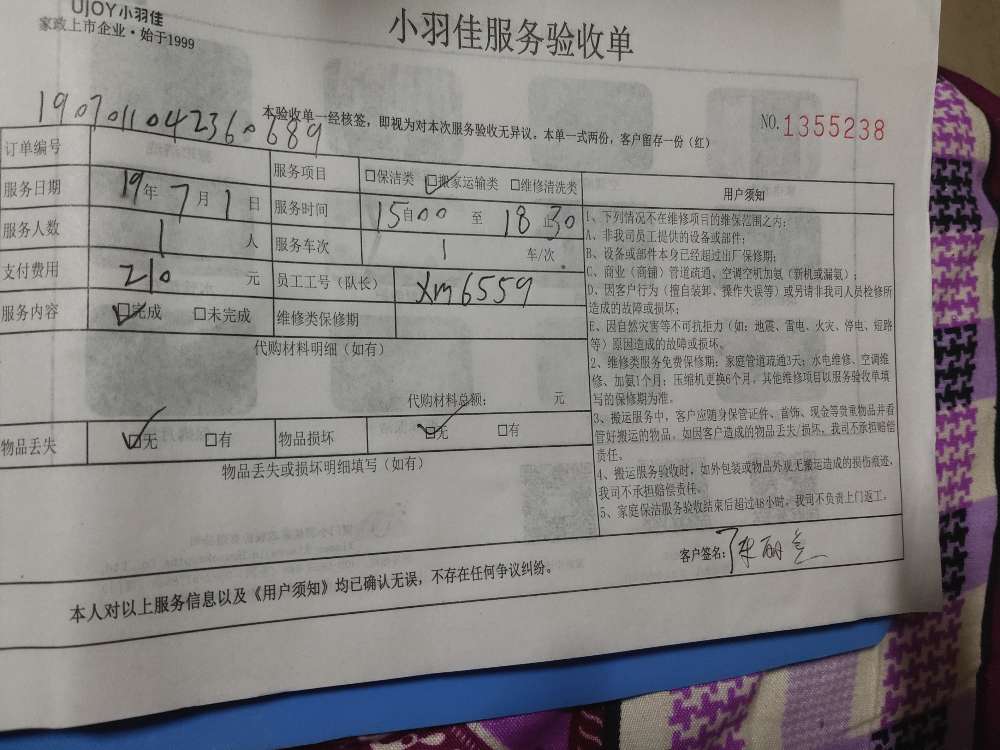 UJOY小羽佳
家政上市企业·始于1999
小羽佳服务验收单
本验收单一经核签，即视为对本次服务验收无异议。本单一式两份，客户留存一份（红）
NO.1355238
订单编号 1907011042360689
服务项目 □保洁类 ☑搬家运输类 □维修清洗类
服务日期 19年7月1日
服务时间 15自00至18止30
服务人数 1人
服务车次 1车/次
支付费用 210元
员工工号（队长） xm6559
服务内容 ☑完成 □未完成
维修类保修期
代购材料明细（如有）
代购材料总额： 元
物品丢失 ☑无 □有
物品损坏 ☑无 □有
物品丢失或损坏明细填写（如有）
用户须知
1、下列情况不在维修项目的维保范围之内：
A、非我司员工提供的设备或部件；
B、设备或部件本身已经超过出厂保修期；
C、商业（商铺）管道疏通、空调空机加氨（新机或漏氨）；
D、因客户行为（擅自装卸、操作失误等）或另请非我司人员检修所
造成的故障或损坏；
E、因自然灾害等不可抗拒力（如：地震、雷电、火灾、停电、短路
等）原因造成的故障或损坏。
2、维修类服务免费保修期：家庭管道疏通3天；水电维修、空调维
修、加氨1个月；压缩机更换6个月，其他维修项目以服务验收单填
写的保修期为准。
3、搬运服务中，客户应随身保管证件、首饰、现金等贵重物品并看
管好搬运的物品，如因客户造成的物品丢失/损坏，我司不承担赔偿
责任。
4、搬运服务验收时，如外包装或物品外观无搬运造成的损伤痕迹，
我司不承担赔偿责任。
5、家庭保洁服务验收结束后超过48小时，我司不负责上门返工。
客户签名：
本人对以上服务信息以及《用户须知》均已确认无误，不存在任何争议纠纷。